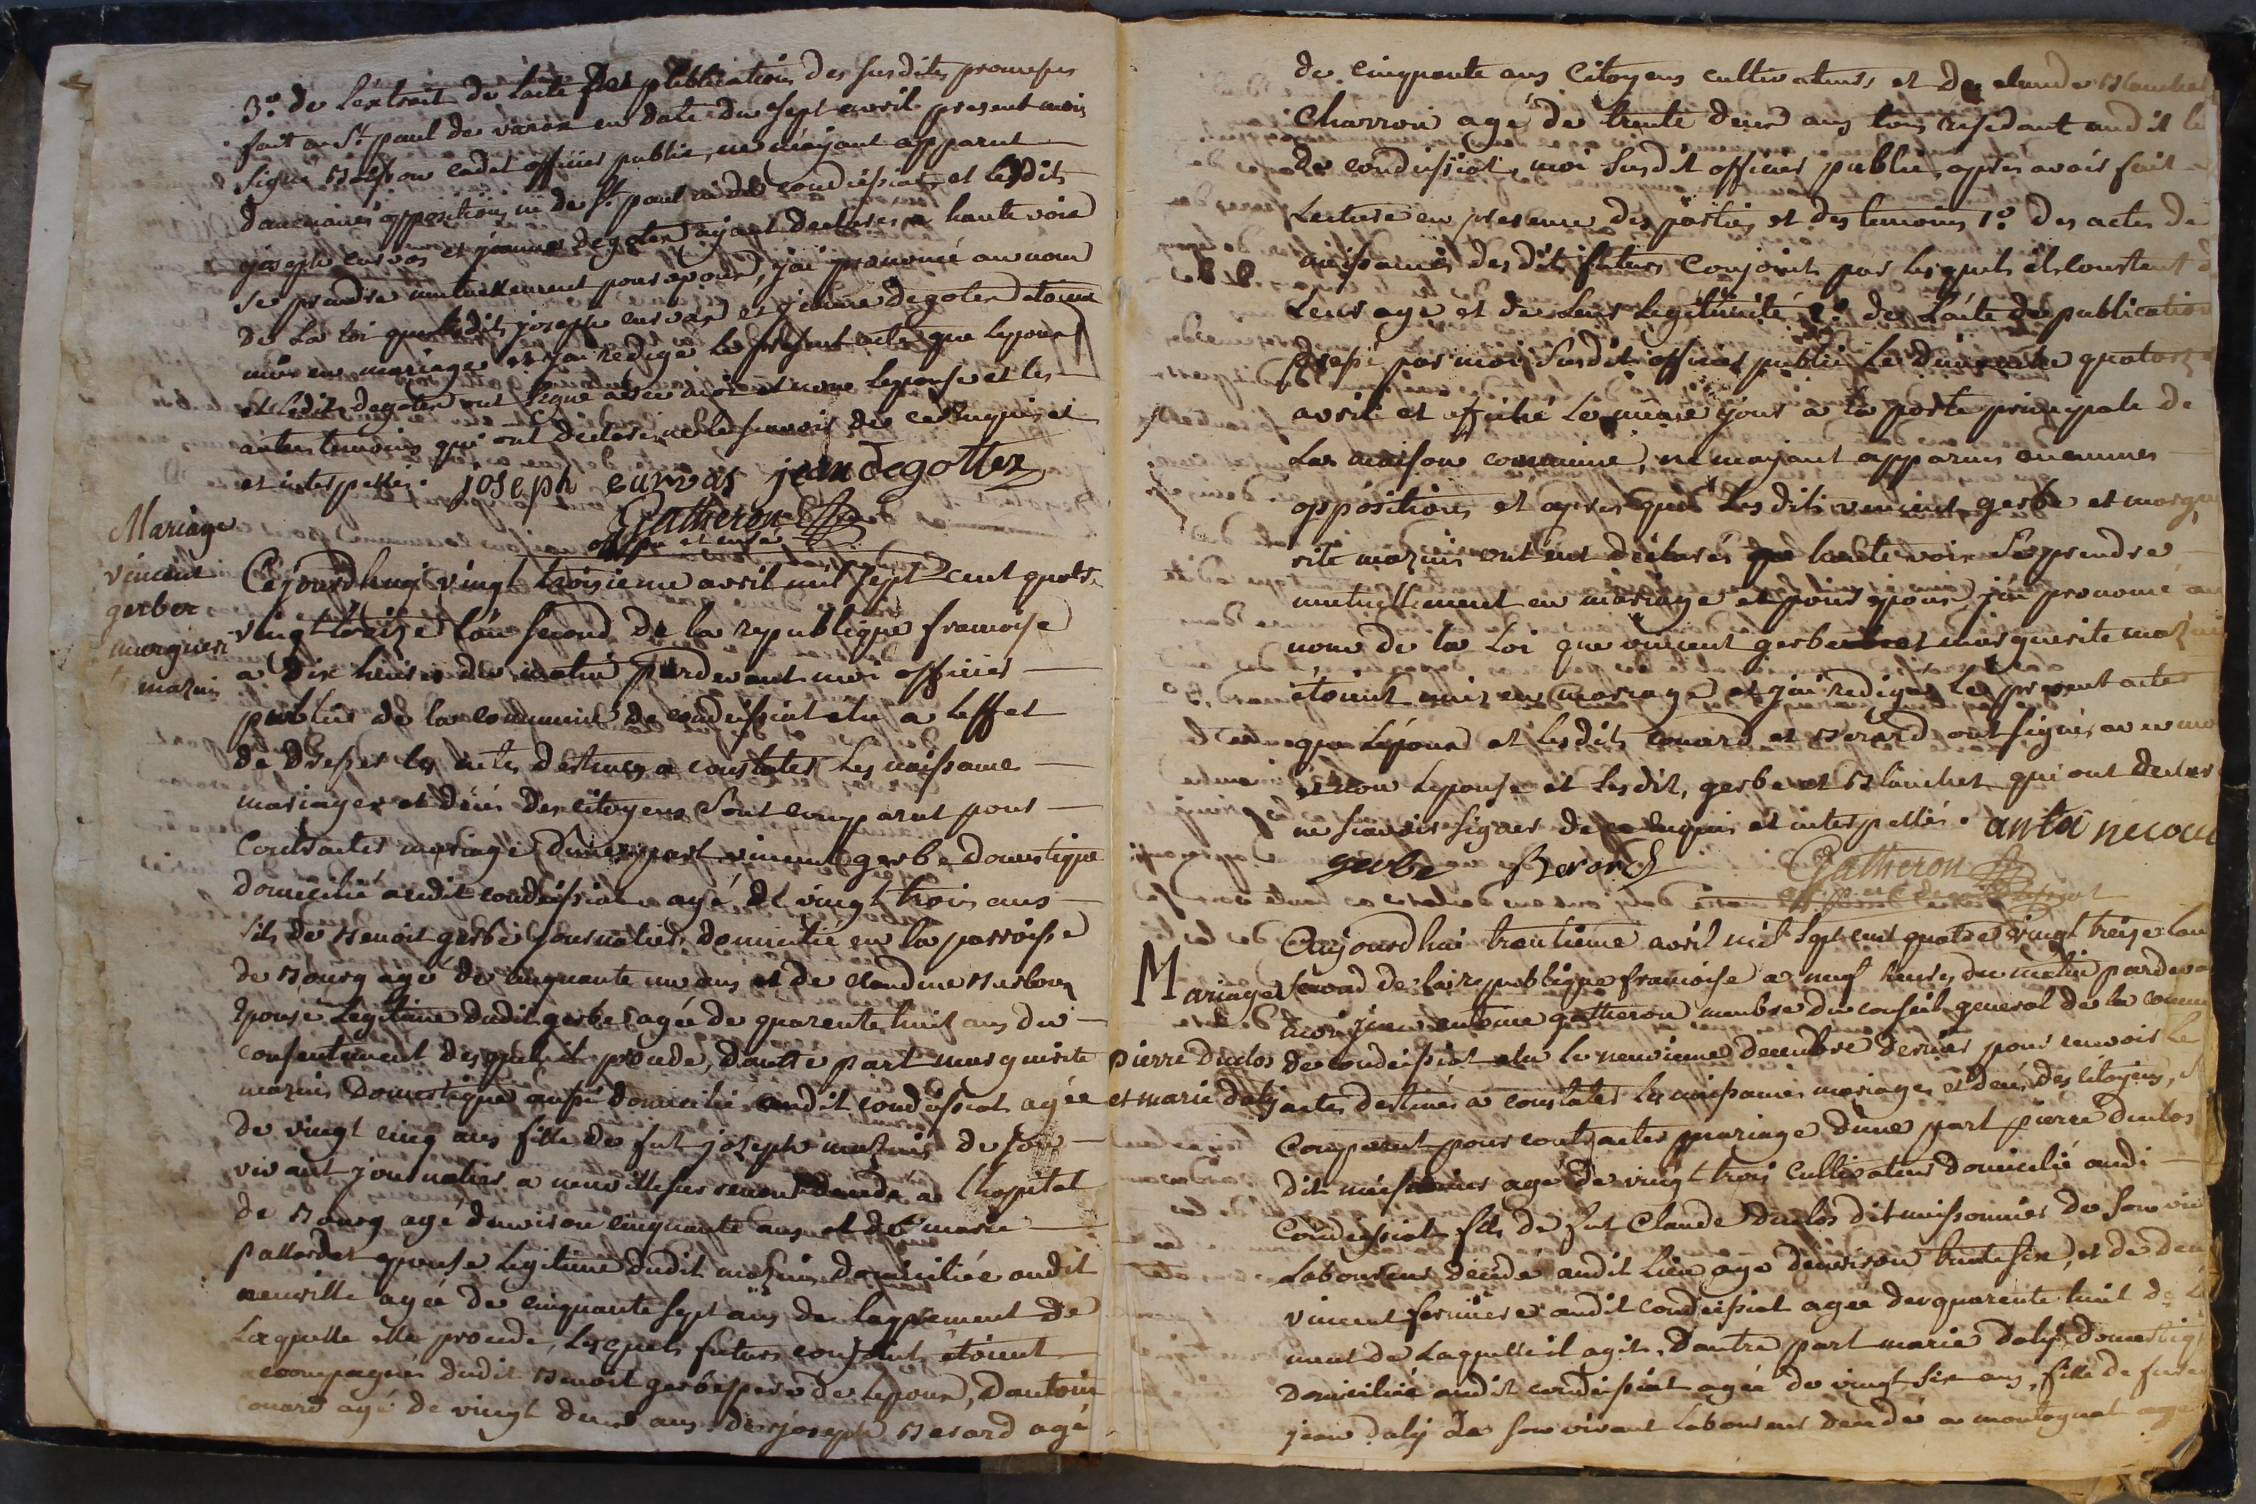 3.° de L'extrait de l'acte des publications des susdites promesses
fait a St paul de varax en date du sept avril present mois
signé cadet officier public, ne m'ayant apparut
d'aucunes oppositions ni de St paul ni de condeissiat et lesdits
joseph curvas et jeanne degotex ayant declarés a haute voix
se prendre mutuellement pour epoux, j'ai prononcé au nom
de la loi que lesdits joseph curvas et jeanne degotex etoient
unis en mariage et j'ai redigé le present acte que lepoux
et ledit degotex ont signé avec moi et non lepouse et les
autres temoins qui ont declarés ne le sçavoir de ce enquis et
et interpellés. joseph curvas jean degottex
Gatheron
off. pu et
Mariage
vincent
gerbe et
marguerite
mazuis
Cejourdhuy vingt troisieme avril mil sept cent quatre
vingt treize l'an second de la republique francoise
a dix heures du matin pardevant moi officier
public de la commune de condeissiat elu a leffet
de dresser les actes destinés a constater les naissances
mariages et décés des citoyens sont comparut pour
contracter mariage d'une part vincent gerbe domestique
domicilié audit condeissiat agé de vingt trois ans
fils de Benoit gerbe journalier domicilié en la parroisse
de Bourg agé de cinquante un ans et de claudine
Epouse Legitime dudit gerbe agée de quarente huit ans du
consentement desquels il procede, d'autre part marguerite
mazuis domestique aussi domicilié audit condeissiat agée
de vingt cinq ans fille de fut joseph mazuis de son
vivant journalier a neuville sur renom décédé a L'hopital
de Bourg agé d'environ cinquante ans et de marie
pallordet epouse legitime dudit mazuis domiciliée audit
neuville agée de cinquante sept ans de lagrement de
laquelle elle procede, Lesquels futurs conjoints étoient
accompagnés dudit Benoit gerbe pere de lepoux, d'antoine
conard agé de vingt deux ans de joseph Berard agé
de cinquante ans citoyens cultivateurs et de claude Blanchet
charron agé de trente deux ans tous residant audit lieu
de condeissiat, moi susdit officier public, apres avoir fait
Lecture en presence des parties et des temoins 1.° des actes de
naissances desdits futurs conjoints par lesquels il constent de
Leurs age et de leurs Legitimité 2.° de L'acte de publication
dressé par moi susdit officier public le dimanche quatorze
avril et affiché le meme jour a la porte principale de
La maison commune, ne mayant apparus aucunes
oppositions et apres que lesdits vincent gerbe et margue
rite mazuis ont eut déclarés a haute voix se prendre
mutuellement en mariage et pour epoux j'ai prononcé au
nom de la Loi que vincent gerbe et marguerite mazuis
étoient unis en mariage et j'ai redigés le present acte
que lépoux et lesdits conard et Berard ont signés avec moi
et non lepouse et lesdit, gerbe et Blanchet qui ont declarés
ne sçavoir signer de ce enquis et interpellés.
gerbe Berard Gatheron
Mariage
pierre Duclos
et marie daly
Cejourdhui trentieme avril mil sept cent quatre vingt treize lan
second de la republique francoise a neuf heures du matin pardevant
moi jean antoine gatheron membre du conseil general de la commune
de condeissiat elu le neuvieme decembre dernier pour recevoir les
actes destinés a constater les naissances mariages et decés des citoyens,
Comparut pour contracter mariage d'une part pierre duclos
dit missonnier agé de vingt trois cultivateur domicilié audit
Condeissiat fils de fut Claude duclos dit missonnier de son vivant
Laboureur décédé audit Lieu agé d'environ trente six, et de
vincent fermiere audit condeissiat agée de quarente huit de
ment de Laquelle il agit, d'autre part marie daly domestique
domicilié audit condeissiat agée de vingt six ans, fille de
jean daly de son vivant Laboureur décédé a montagnat agé